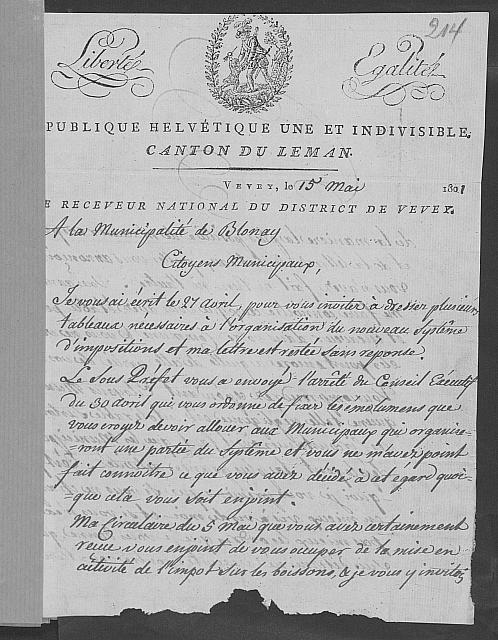 214
Liberté, Egalité,
PUBLIQUE HELVÉTIQUE UNE ET INDIVISIBLE.
CANTON DU LEMAN.
VEVEY, le 15 Mai 1801
E RECEVEUR NATIONAL DU DISTRICT DE VEVEY.
A la Municipalité de Blonay
Citoyens Municipaux,
Je vous ai écrit le 27 avril, pour vous inviter à dresser plusieurs
tableaux nécessaires à l'organisation du nouveau Systême
d'impositions et ma lettre est restée sans réponse.
Le Sous Préfet vous a envoyé l'arrêté du Conseil Exécutif
du 30 avril qui vous ordonne de fixer les émolumens que
vous croyez devoir allouer aux Municipaux qui organise-
-ront une partie du Systême et vous ne m'avez point
fait connoître ce que vous avez décidé à cet egard quoi-
-que cela vous soit enjoint.
Ma Circulaire du 5 Mai que vous avez certainement
reçue vous enjoint de vous occuper de la mise en
activité de l'impot sur les boissons, & je vous y invitois